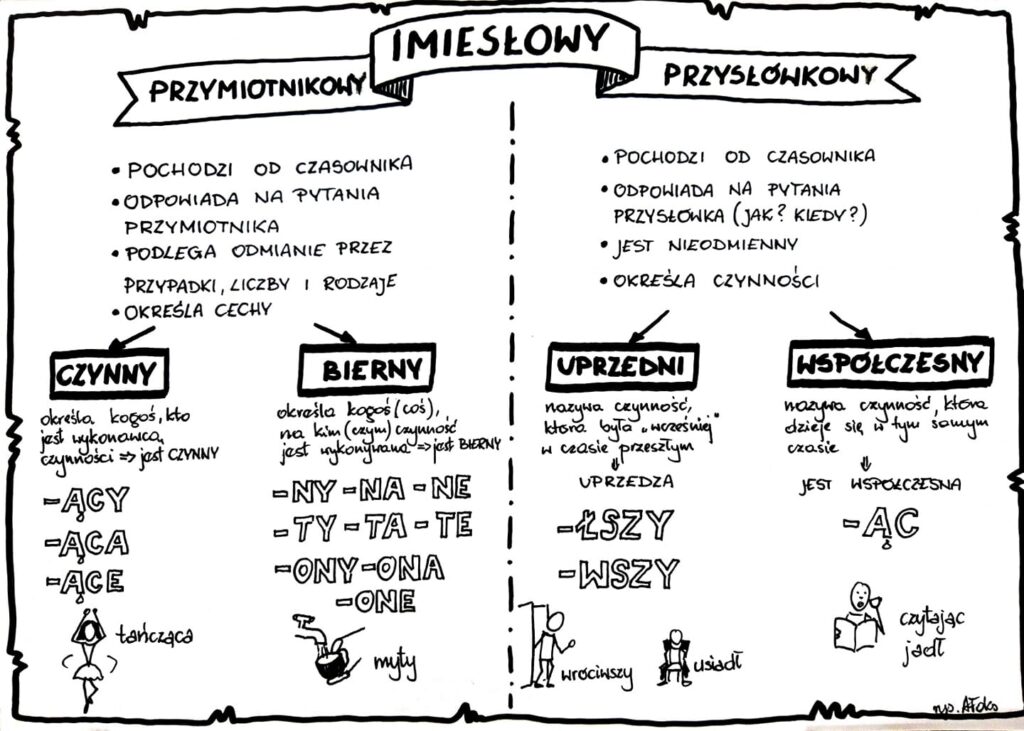 IMIESŁOWY
PRZYMIOTNIKOWY
• POCHODZI OD CZASOWNIKA
• ODPOWIADA NA PYTANIA
PRZYMIOTNIKA
• PODLEGA ODMIANIE PRZEZ
PRZYPADKI, LICZBY I RODZAJE
• OKREŚLA CECHY
CZYNNY
określa kogoś, kto
jest wykonawcą
czynności ⇒ jest CZYNNY
-ĄCY
-ĄCA
-ĄCE
tańcząca
BIERNY
określa kogoś (coś),
na kim (czym) czynność
jest wykonywana ⇒ jest BIERNY
-NY -NA -NE
-TY -TA -TE
-ONY -ONA
-ONE
myty
PRZYSŁÓWKOWY
• POCHODZI OD CZASOWNIKA
• ODPOWIADA NA PYTANIA
PRZYSŁÓWKA (JAK? KIEDY?)
• JEST NIEODMIENNY
• OKREŚLA CZYNNOŚCI
UPRZEDNI
nazywa czynność,
która była „wcześniej"
w czasie przeszłym
⇓
UPRZEDZA
-ŁSZY
-WSZY
wróciwszy
usiadł
WSPÓŁCZESNY
nazywa czynność, która
dzieje się w tym samym
czasie
⇓
JEST WSPÓŁCZESNA
-ĄC
czytając
jadł